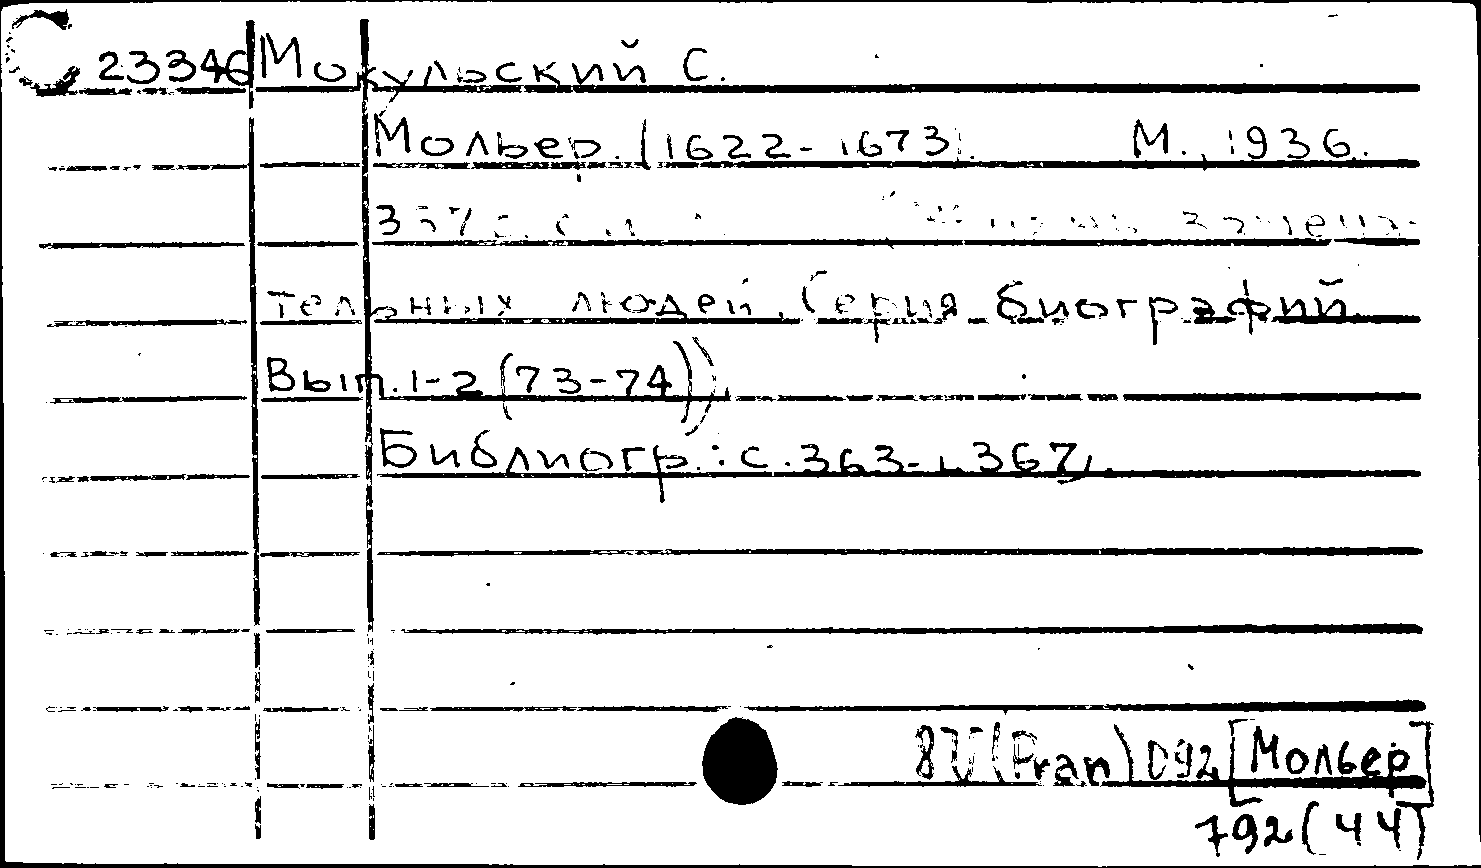 С 23346 Мокульский С.
Мольер. (1622-1673). М., 1936.
367 с. замеча-
тельных людей. Серия биографий.
Вып. 1-2 (73-74)).
Библиогр.: с. 363-367.
8И(Фран) 092 [Мольер]
792(44)